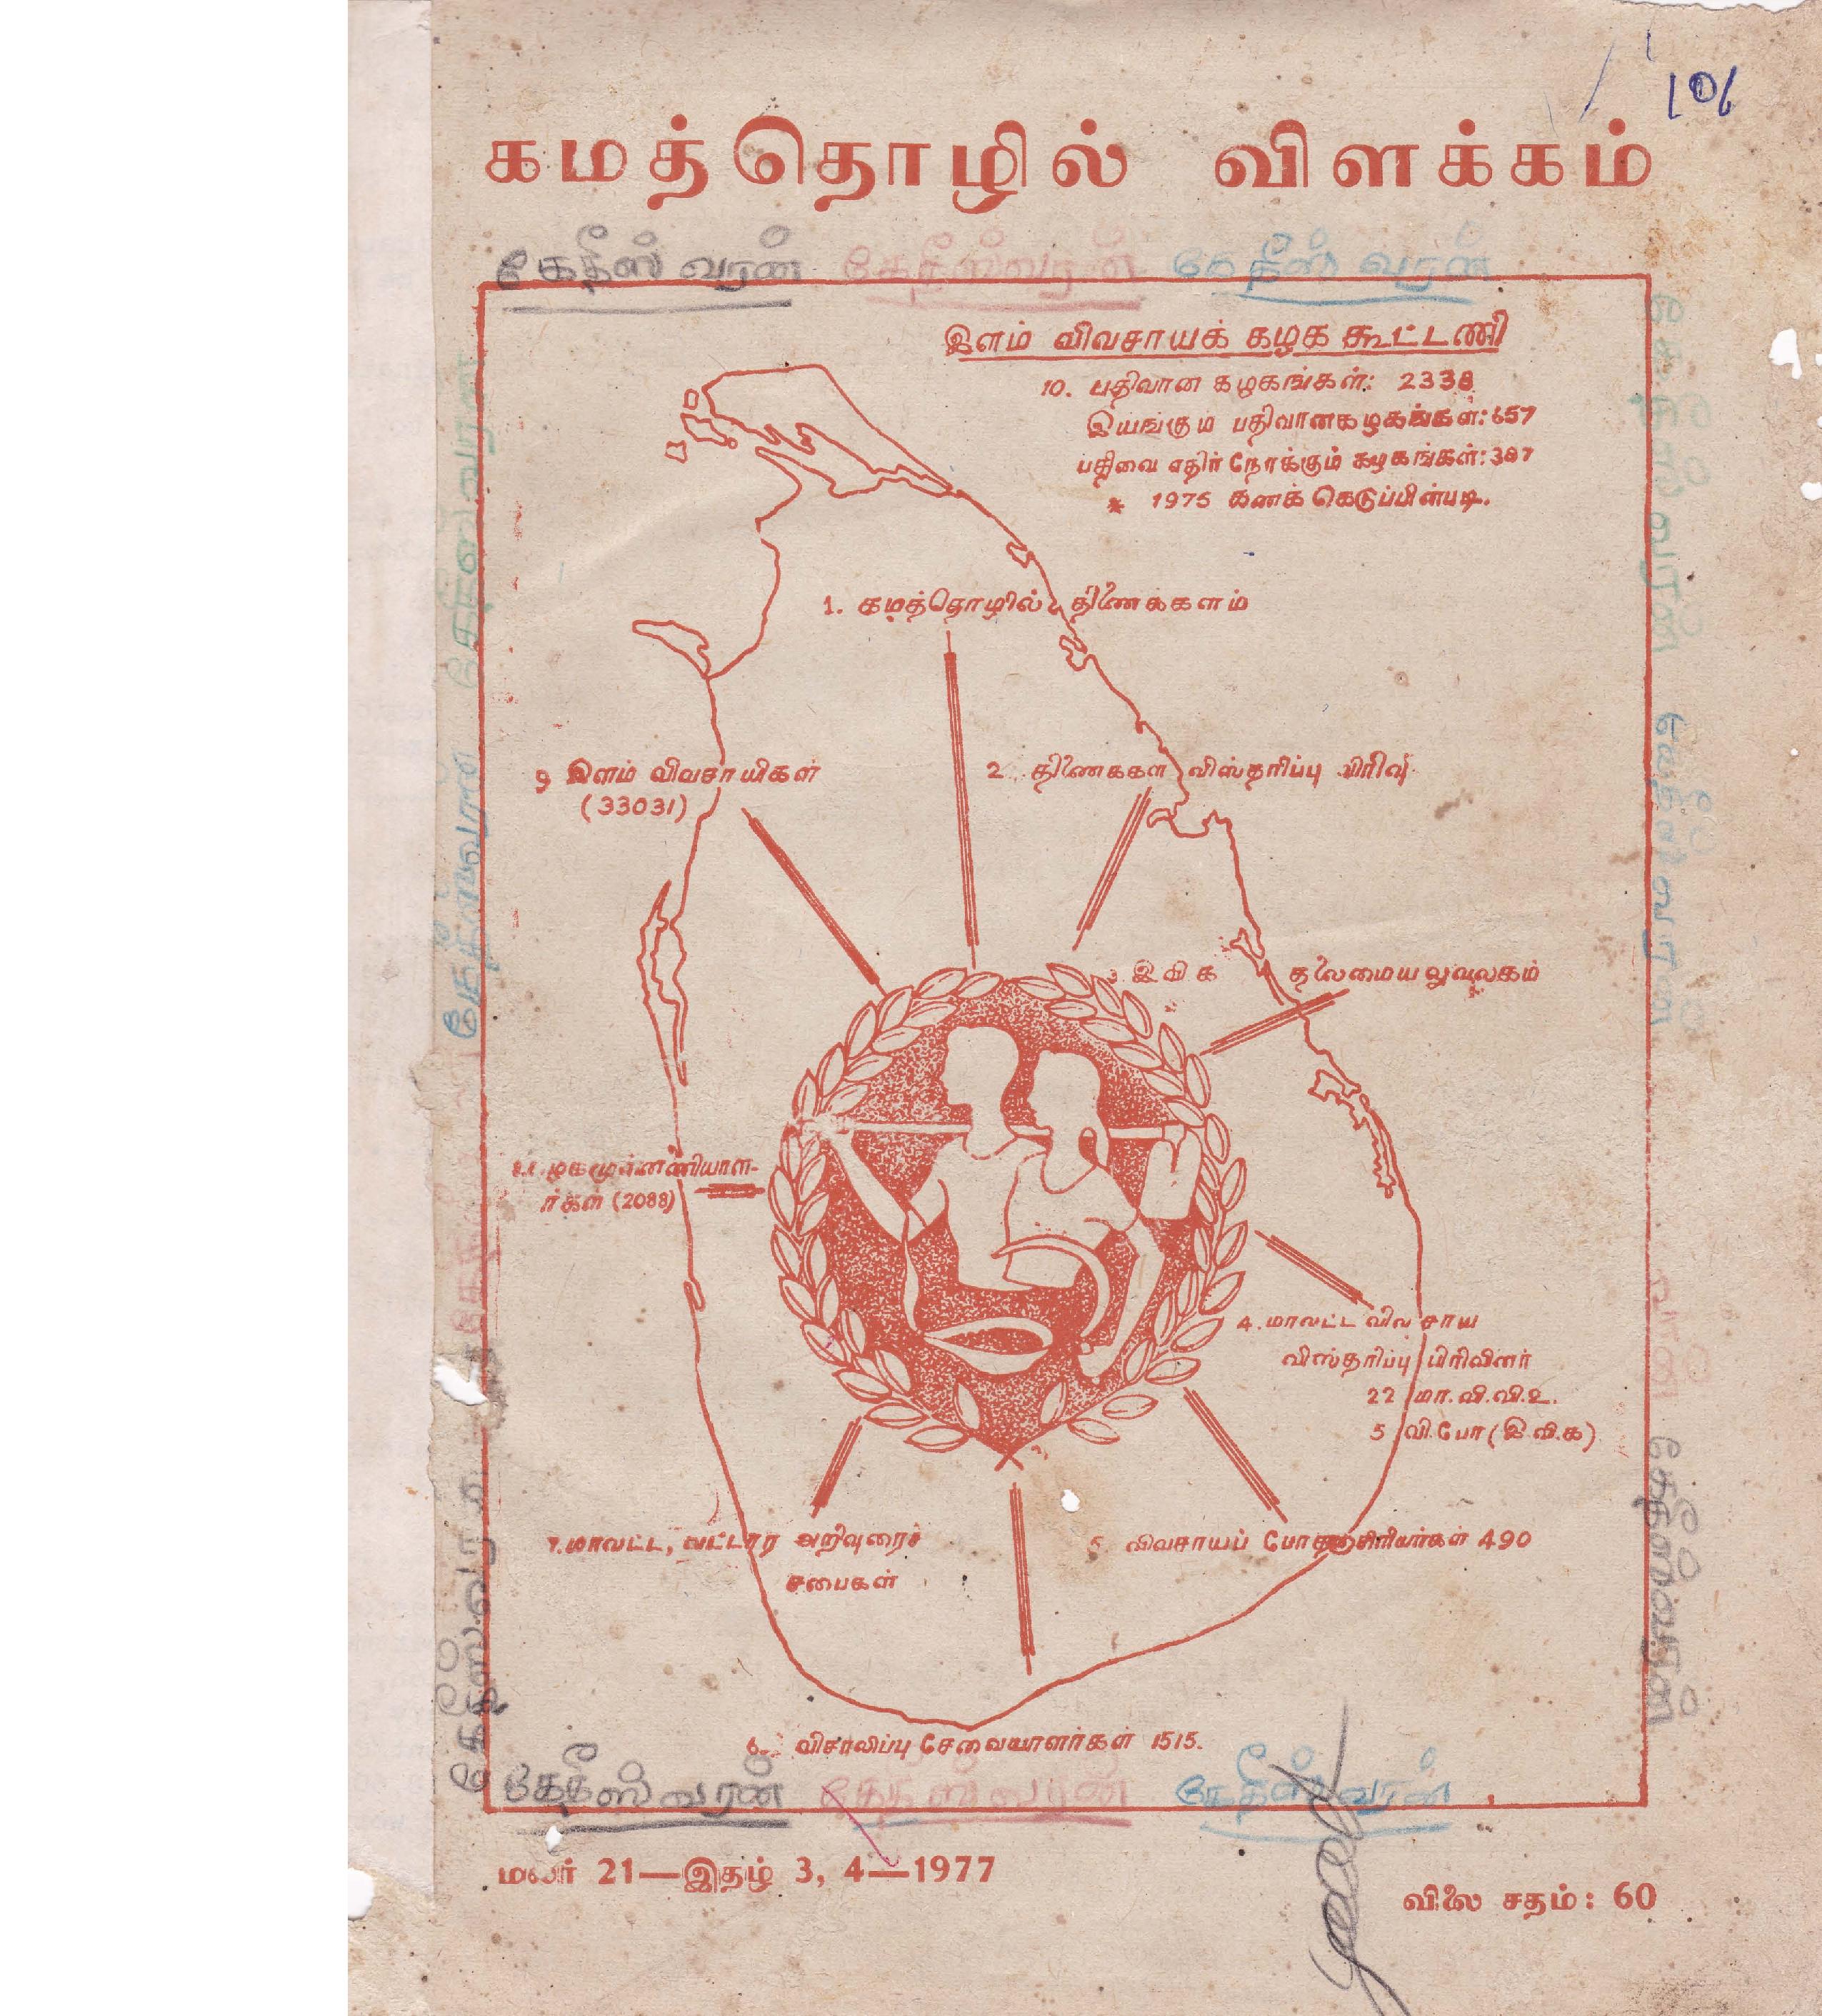 101
கமத்தொழில் விளக்கம்
கேதீஸ்வரன் கேதீஸ்வரன் கேதீஸ்வரன்
இளம் விவசாயக் கழக கூட்டணி
10. பதிவான கழகங்கள்: 2338
இயங்கும் பதிவானகழகங்கள்: 657
பதிவை எதிர் நோக்கும் கழகங்கள்: 387
* 1975 கணக் கெடுப்பின்படி.
1. கமத்தொழில் திணைக்களம்
9 இளம் விவசாயிகள்
(33031)
2. திணைக்கள விஸ்தரிப்பு பிரிவு
3. இ வி க தலைமையலுவலகம்
8. கழகமுன்னணியாள-
ர்கள் (2088)
4. மாவட்ட விவசாய
விஸ்தரிப்பு பிரிவினர்
22 மா.வி.வி.உ.
5 வி.போ (இ.வி.க)
7. மாவட்ட, வட்டார அறிவுரைச்
சபைகள்
5. விவசாயப் போதனாசிரியர்கள் 490
6. விசாலிப்பு சேவையாளர்கள் 1515.
கேதீஸ்வரன் கேதீஸ்வரன் கேதீஸ்வரன்
மலர் 21—இதழ் 3, 4—1977
விலை சதம்: 60
கேதீஸ்வரன்
கேதீஸ்வரன்
கேதீஸ்வரன்
கேதீஸ்வரன்
கேதீஸ்வரன்
கேதீஸ்வரன்